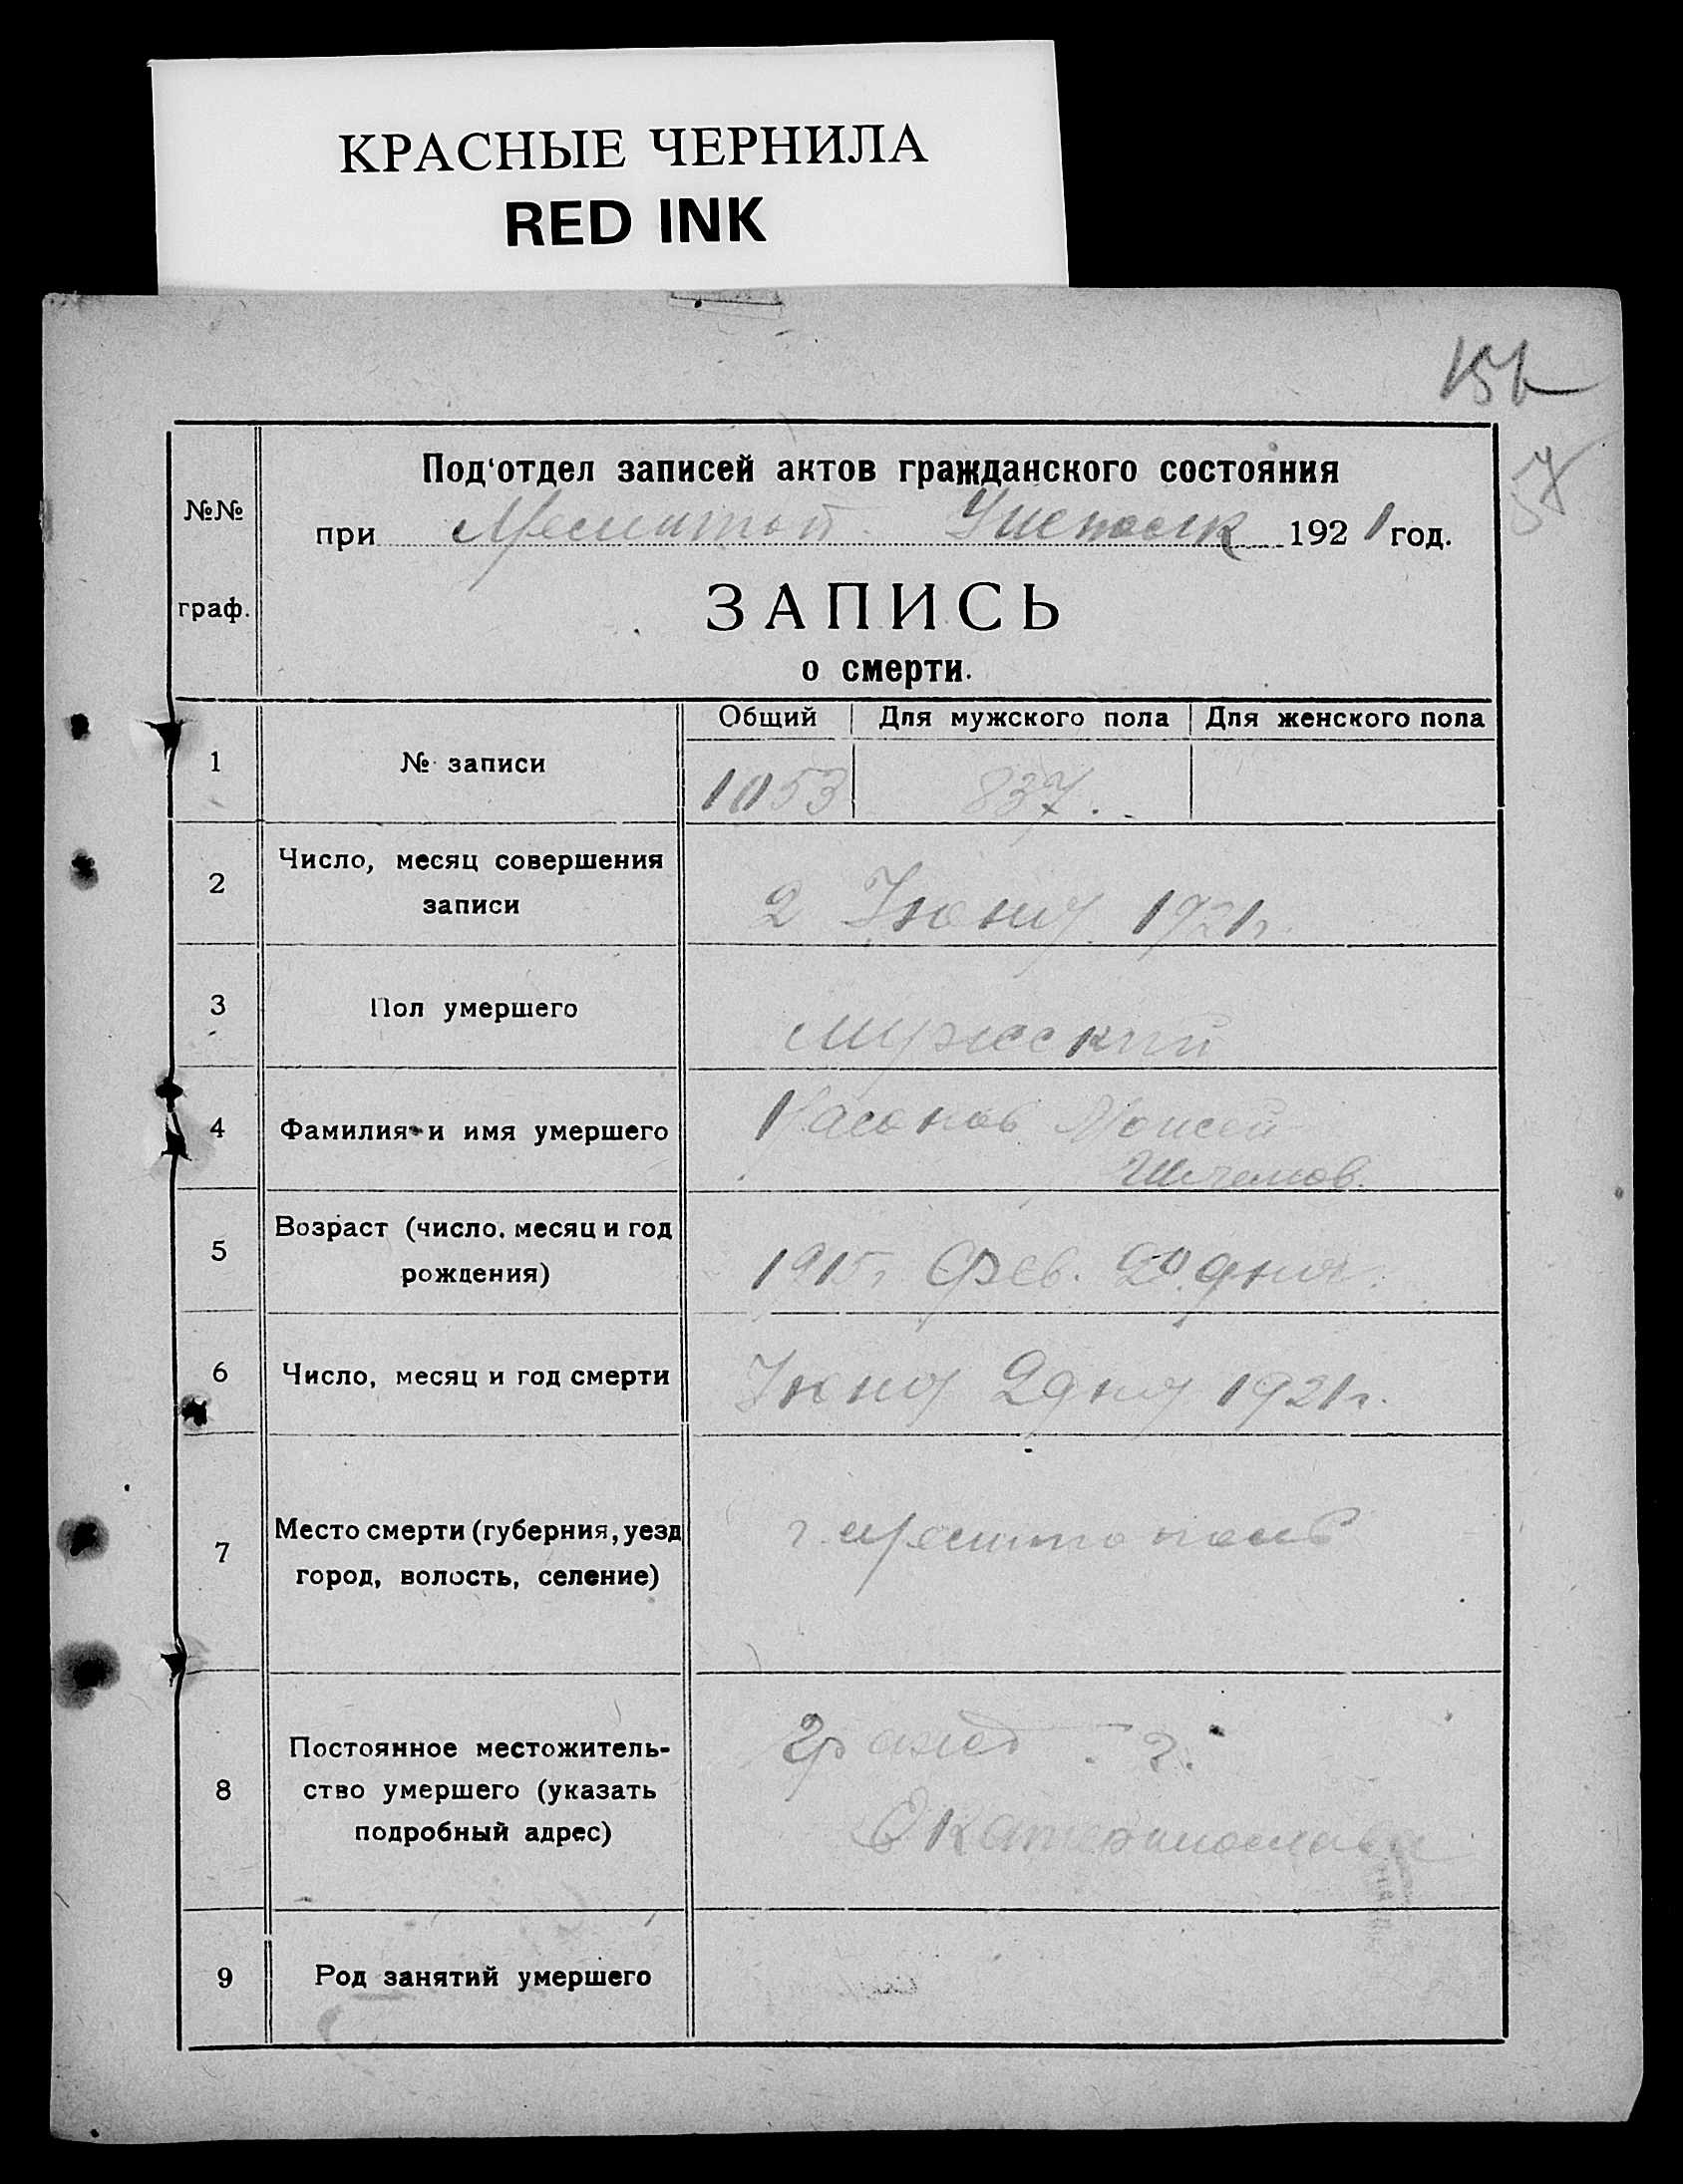 КРАСНЫЕ ЧЕРНИЛА
RED INK
Под'отдел записей актов гражданского состояния
№№
при 1921 год.
граф.
ЗАПИСЬ
о смерти.
Общий Для мужского пола Для женского пола
1 № записи 1053 837.
2 Число, месяц совершения
записи 2 Июня 1921г.
3 Пол умершего мужский
4 Фамилия и имя умершего Моисей
5 Возраст (число, месяц и год
рождения) 1915г. Фев. 20 дня
6 Число, месяц и год смерти Июня 2 дня 1921г.
7 Место смерти (губерния, уезд
город, волость, селение) г. Мелитополь
8 Постоянное местожитель-
ство умершего (указать
подробный адрес) Гражд. г.
Екатеринослава
9 Род занятий умершего